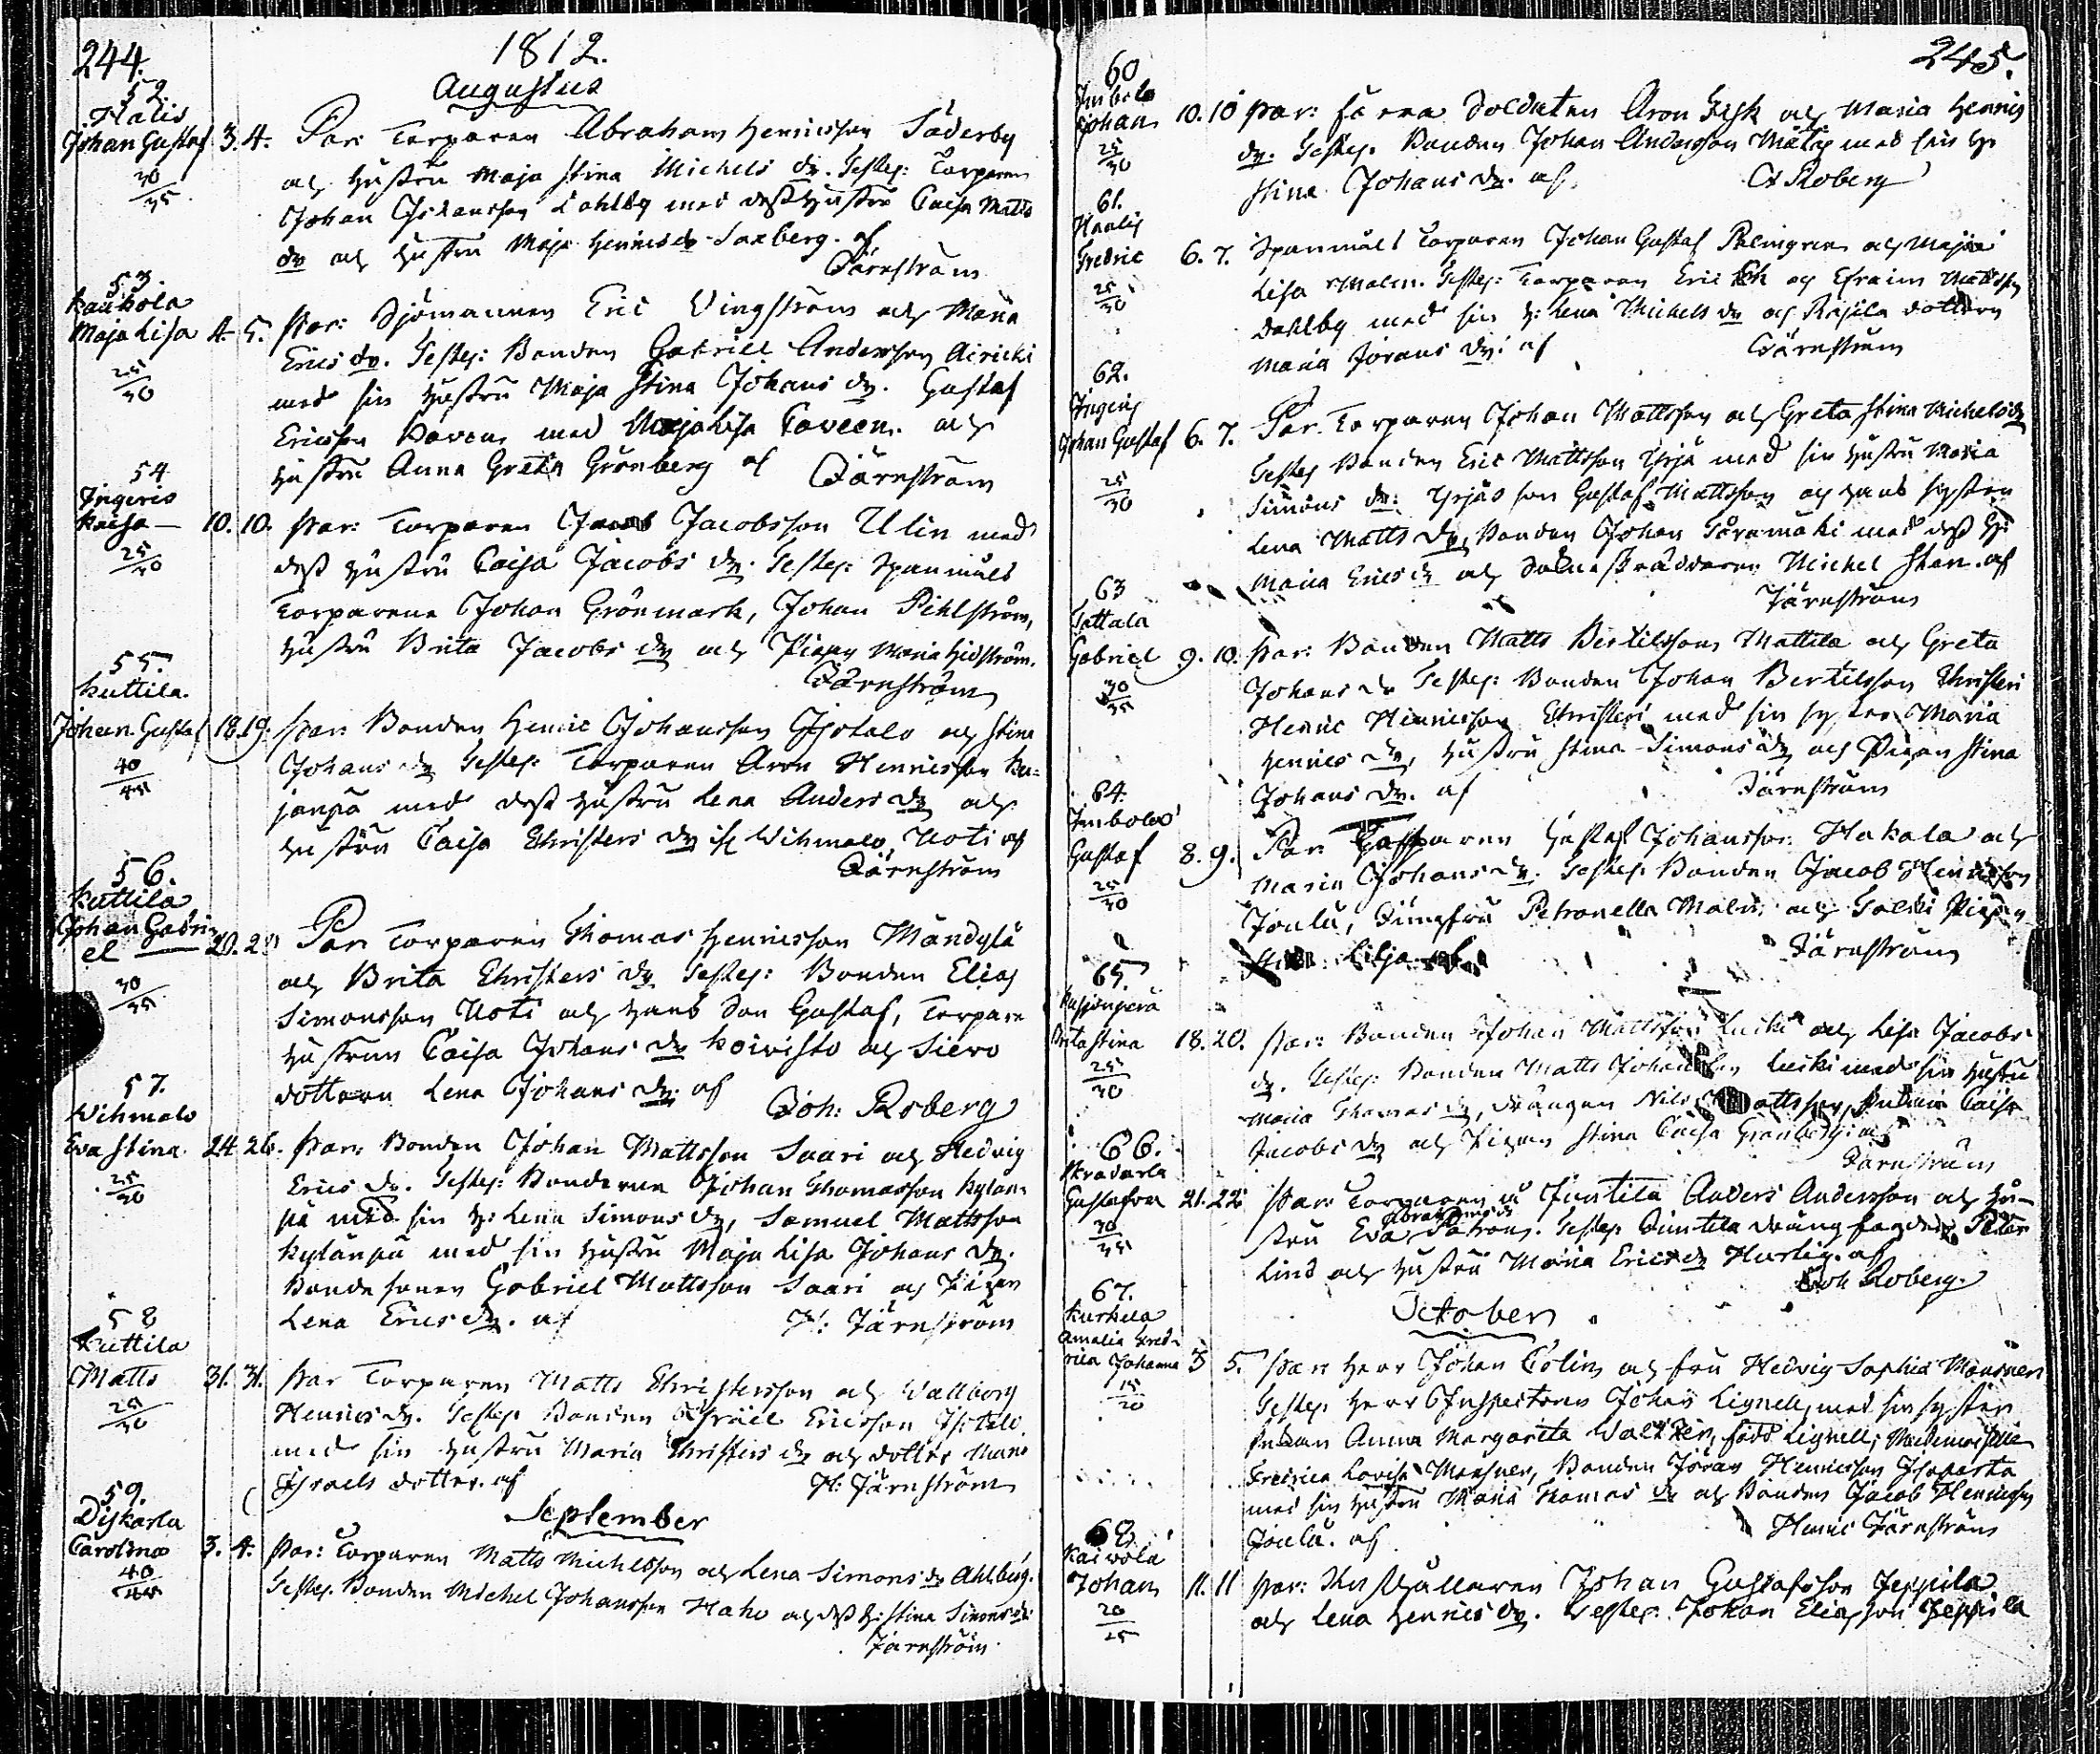 244.
1812.
Augustus
52.
Halis
Johan Gustaf 3. 4. Par: Torparen Abraham Henricsson Söderby
30/35
och hustru Maja Stina Michels dr. Testes: Torparen
Johan Johansson Dahlby med dess hustru Caisa Matts
dr och hustru Maja Henrics dr Saxberg. af
Järnström
53.
Kaukola
Maja Lisa 4. 5. Par: Sjömannen Eric Vingström och Maria
25/30
Erics dr. Testes: Bonden Gabriel Andersson Airicki
med sin hustru Maja Stina Johans dr. Gustaf
Ericsson Paven med Maja Lisa Paveen. och
hustru Anna Greta Grönberg af Järnström
54
Ingeris
Kaisa — 10. 10. Par: Torparen Jacob Jacobsson Ulin med
25/30
dess hustru Caisa Jacobs dr. Testes: Spanmåls
Torparena Johan Grönmark, Johan Pihlström,
hustru Brita Jacobs dr och Pigan Maria Hidström.
Järnström
55.
Kuttila.
Johan Gustaf 18. 19. Par: Bonden Henric Johansson Isotalo och Stina
40/45
Johans dr Testes: Torparen Aron Henricsson Ku-
janpä med dess hustru Lena Anders dr och
hustru Caisa Christers dr ifr Wihmalo, Uoti af
Järnström
56.
Kuttila
Johan Gabri
el — 20. 2 Par: Torparen Thomas Henricsson Mändylä
30/35
och Brita Christers dr Testes: Bonden Elias
Simonsson Uoti och hans Son Gustaf, Torpare
hustrun Caisa Johans dr Koivisto och Siero
dottern Lena Johans dr: af
Joh: Roberg
57.
Wihmalo
Eva Stina. 24. 26. Par: Bonden Johan Mattsson Saari och Hedvig
25/30
Erics dr. Testes: Bönderne Johan Thomasson Kylän-
pä med sin h: Lena Simons dr, Samuel Mattsson
Kylänpä med sin hustru Maja Lisa Johans dr.
Bonde sonen Gabriel Mattsson Saari och Pigan
Lena Erics dr. af H: Järnström
58
Kuttila
Matts 31. 31. Par Torparen Matts Christersson och Wallborg
25/30
Henrics dr. Testes Bonden Israel Ericsson Isotalo
med sin hustru Maria Christers dr och dotter Maria
Israels dotter. af H: Järnström
September
59.
Diskarla
Carolina 3. 4. Par: Torparen Matts Michelsson och Lena Simons dr Ahlberg.
40/45
Testes. Bonden Michel Johansson Haho och dess h: Stina Simons dr:
Järnström
245.
60
Imbola
Johan 10. 10 Par: Förra Soldaten Aron Fisk och Maria Henrics
25/30
dr. Testes. Bonden Johan Andersson Mälis med sin h:
Stina Johans dr. af. Roberg
61.
Haalis
Fredric 6. 7. Spanmåls Torparen Johan Gustaf Palmgren och Maja
25/30
Lisa Malm. Testes: Torparen Eric Ek och Efraim Mattsson
Dahlby med sin h: Lena Michels dr och dottern
Maria Jörans dr: af Järnström
62.
Ingeris
Johan Gustaf 6. 7. Par. Torparen Johan Mattsson och Greta Stina Michels dr
25/30
Testes Bonden Eric Mattsson Yrjä med sin hustru Maria
Simons dr: Yrjäs son Gustaf Mattsson och hans syster
Lena Matts dr, Bonden Johan Töremäki med dess h:
Maria Erics dr och Michel Sten. af
Järnström
63
Tattala
Gabriel 9. 10. Par: Bonden Matts Bertilsson Mattila och Greta
30/35
Johans dr Testes: Bonden Johan Bertilsson Christeri
Henric Henricsson Christeri med sin syster Maria
Henrics dr, hustru Stina Simons dr och Pigan Stina
Johans dr. af Järnström
64.
Imbola
Gustaf 8. 9. Par: Torparen Gustaf Johansson Hakala och
25/30
Maria Johans dr. Testes. Bonden Jacob Henricsson
Joulu, Jungfru Petronella Malm och Pigan
Lilja af
Järnström
65.
Kasjonperä
Brita Stina 18. 20. Par: Bonden Johan Mattsson Luski och Lisa Jacobs
25/30
dr. Testes: Bonden Matts Johansson Luski med sin hustru
Maria Thomas dr, drängen Nils Mattsson, Caisa
Jacobs dr och Pigan Stina Caisa Granberg af
Järnström
66.
Skradarla
Gustafva 21. 22. Par: Torparen å Juntila Anders Andersson och hu-
30/35
stru Eva Abrahams dr Testes Juntila dräng Petter
Lind och hustru Maria Erics dr Hurlig. af
Joh Roberg.
October
67.
Kurkela
Amalia Fred-
rica Johanna 3 5. Par: Herr Johan Colin och fru Hedvig Sophia Mansner
15/20
Testes Herr Inspectoren Johan Lignell, med sin syster
Anna Margareta Walther, född Lignell, Mademoiselle
Fredrica Lovisa Mansner, Bonden Jöran Henricsson
med sin hustru Maria Thomas dr och Bonden Jacob Henricsson
Joulu. af Henric Järnström
68.
Kaivola
Johan 11. 11 Par: Johan Gustafsson Jeppila
20/25
och Lena Henrics dr. Testes: Johan Eliasson Jeppila